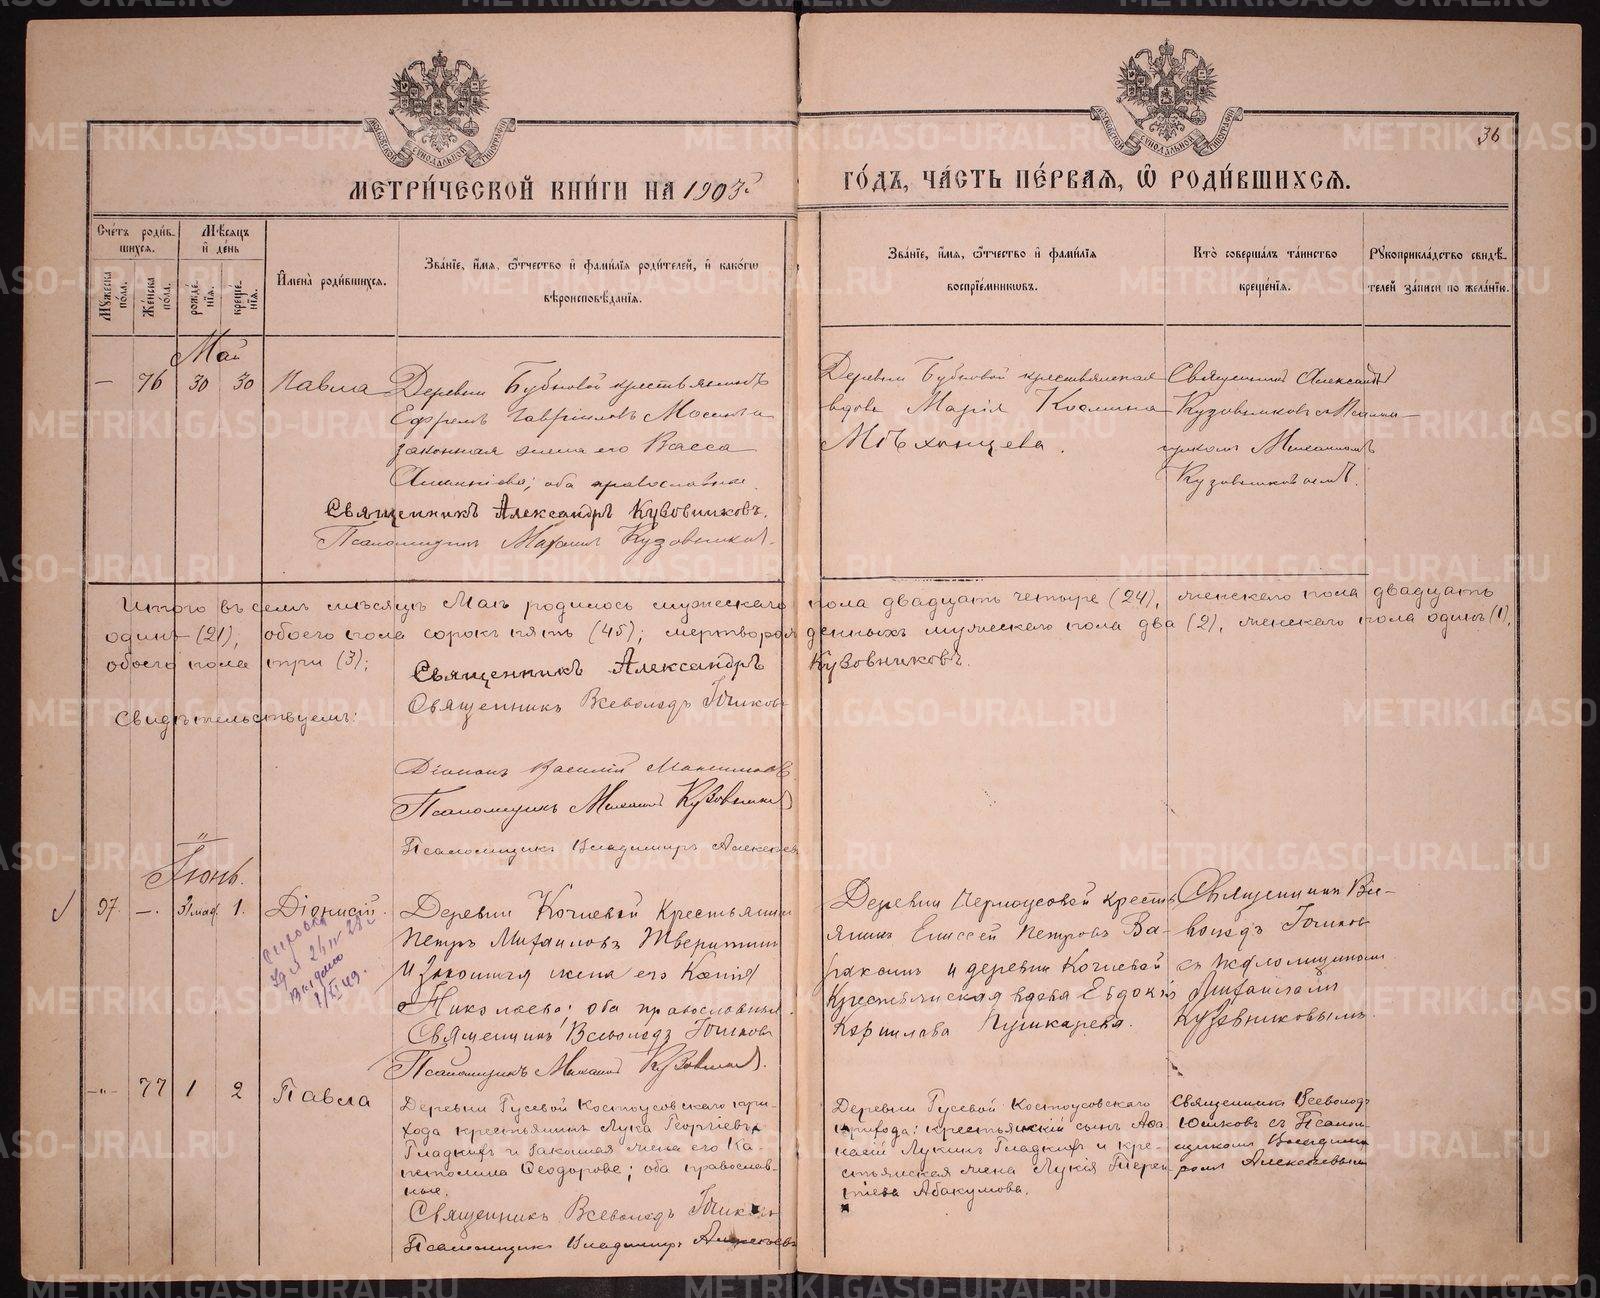 МЕТРИ́ЧЕСКОЙ КНИ́ГИ НА 1903 й
ГО́ДЪ, ЧА́СТЬ ПЕ́РВАѦ, Ѿ РОДИ́ВШИХСѦ.
36
МОСКОВСКОЙ СѴНОДАЛЬНОЙ ТИПОГРАФІИ
МОСКОВСКОЙ СѴНОДАЛЬНОЙ ТИПОГРАФІИ
Сче́тъ роди́вшихсѧ.
Мꙋ́жеска по́ла.
Же́нска по́ла.
Мѣ́сѧцъ и҆ де́нь
рожде́нїѧ.
креще́нїѧ.
И҆мена̀ роди́вшихсѧ.
Зва́нїе, и҆́мѧ, ѻ҆́тчество и҆ фами́лїѧ роди́телей, и҆ како́гѡ
вѣроисповѣ́данїѧ.
Зва́нїе, и҆́мѧ, ѻ҆́тчество и҆ фами́лїѧ
воспрїе́мникѡвъ.
Кто̀ соверша́лъ та́инство
креще́нїѧ.
Рꙋкоприкла́дство свидѣ́телей за́писи по жела́нїю.
Май
— 76 30 30 Павла
Деревни Бубновой крестьянинъ
Ефремъ Гавріиловъ Мосинъ и
законная жена его Васса
оба православные.
Священникъ Александръ Кузовниковъ.
Псаломщикъ Михаилъ Кузовниковъ.
Деревни Бубновой крестьянская
вдова Марія Космина
Мѣхонцева.
Священникъ Александръ
Кузовниковъ съ Псалом-
щикомъ Михаиломъ
Кузовниковымъ.
Итого въ семъ мѣсяцѣ Маѣ родилось мужескаго пола двадцать четыре (24), женскаго пола двадцать
одинъ (21), обоего пола сорокъ пять (45); мертворожденныхъ мужескаго пола два (2), женскаго пола одинъ (1),
обоего пола три (3);
Священникъ Александръ Кузовниковъ.
Свидѣтельствуемъ:
Священникъ Всеволодъ Юшковъ
Діаконъ Василій Максимовъ
Псаломщикъ Михаилъ Кузовниковъ
Псаломщикъ Владимиръ Алексѣевъ
Іюнь.
97. —. 31 мая. 1. Діонисій.
Выдано
Деревни Кочневой Крестьянинъ
Петръ Михаиловъ Тверитинъ
и законная жена его Ксенія
Николаева; оба православные.
Священникъ Всеволодъ Юшковъ
Псаломщикъ Михаилъ Кузовниковъ.
Деревни Черноусовой кресть-
янинъ Елиссей Петровъ Ва-
ракинъ и деревни Кочневой
Крестьянская вдова Евдокія
Корнилова Пушкарева.
Священникъ Все-
володъ Юшковъ
съ псаломщикомъ
Михаиломъ
Кузовниковымъ.
—„— 77 1 2 Павла
Деревни Гусевой Костоусовскаго при-
хода крестьянинъ Лука Георгіевъ
Гладкихъ и законная жена его Ка-
питолина Ѳеодорова; оба православ-
ные.
Священникъ Всеволодъ Юшковъ
Псаломщикъ Владимиръ Алексѣевъ
Деревни Гусевой Костоусовскаго
прихода: крестьянскій сынъ Аѳа-
насій Лукинъ Гладкихъ и кре-
стьянская жена Лукія Терен-
тіева Абакумова.
Священникъ Всеволодъ
Юшковъ съ Псалом-
щикомъ Владими-
ромъ Алексѣевымъ
METRIKI.GASO-URAL.RU